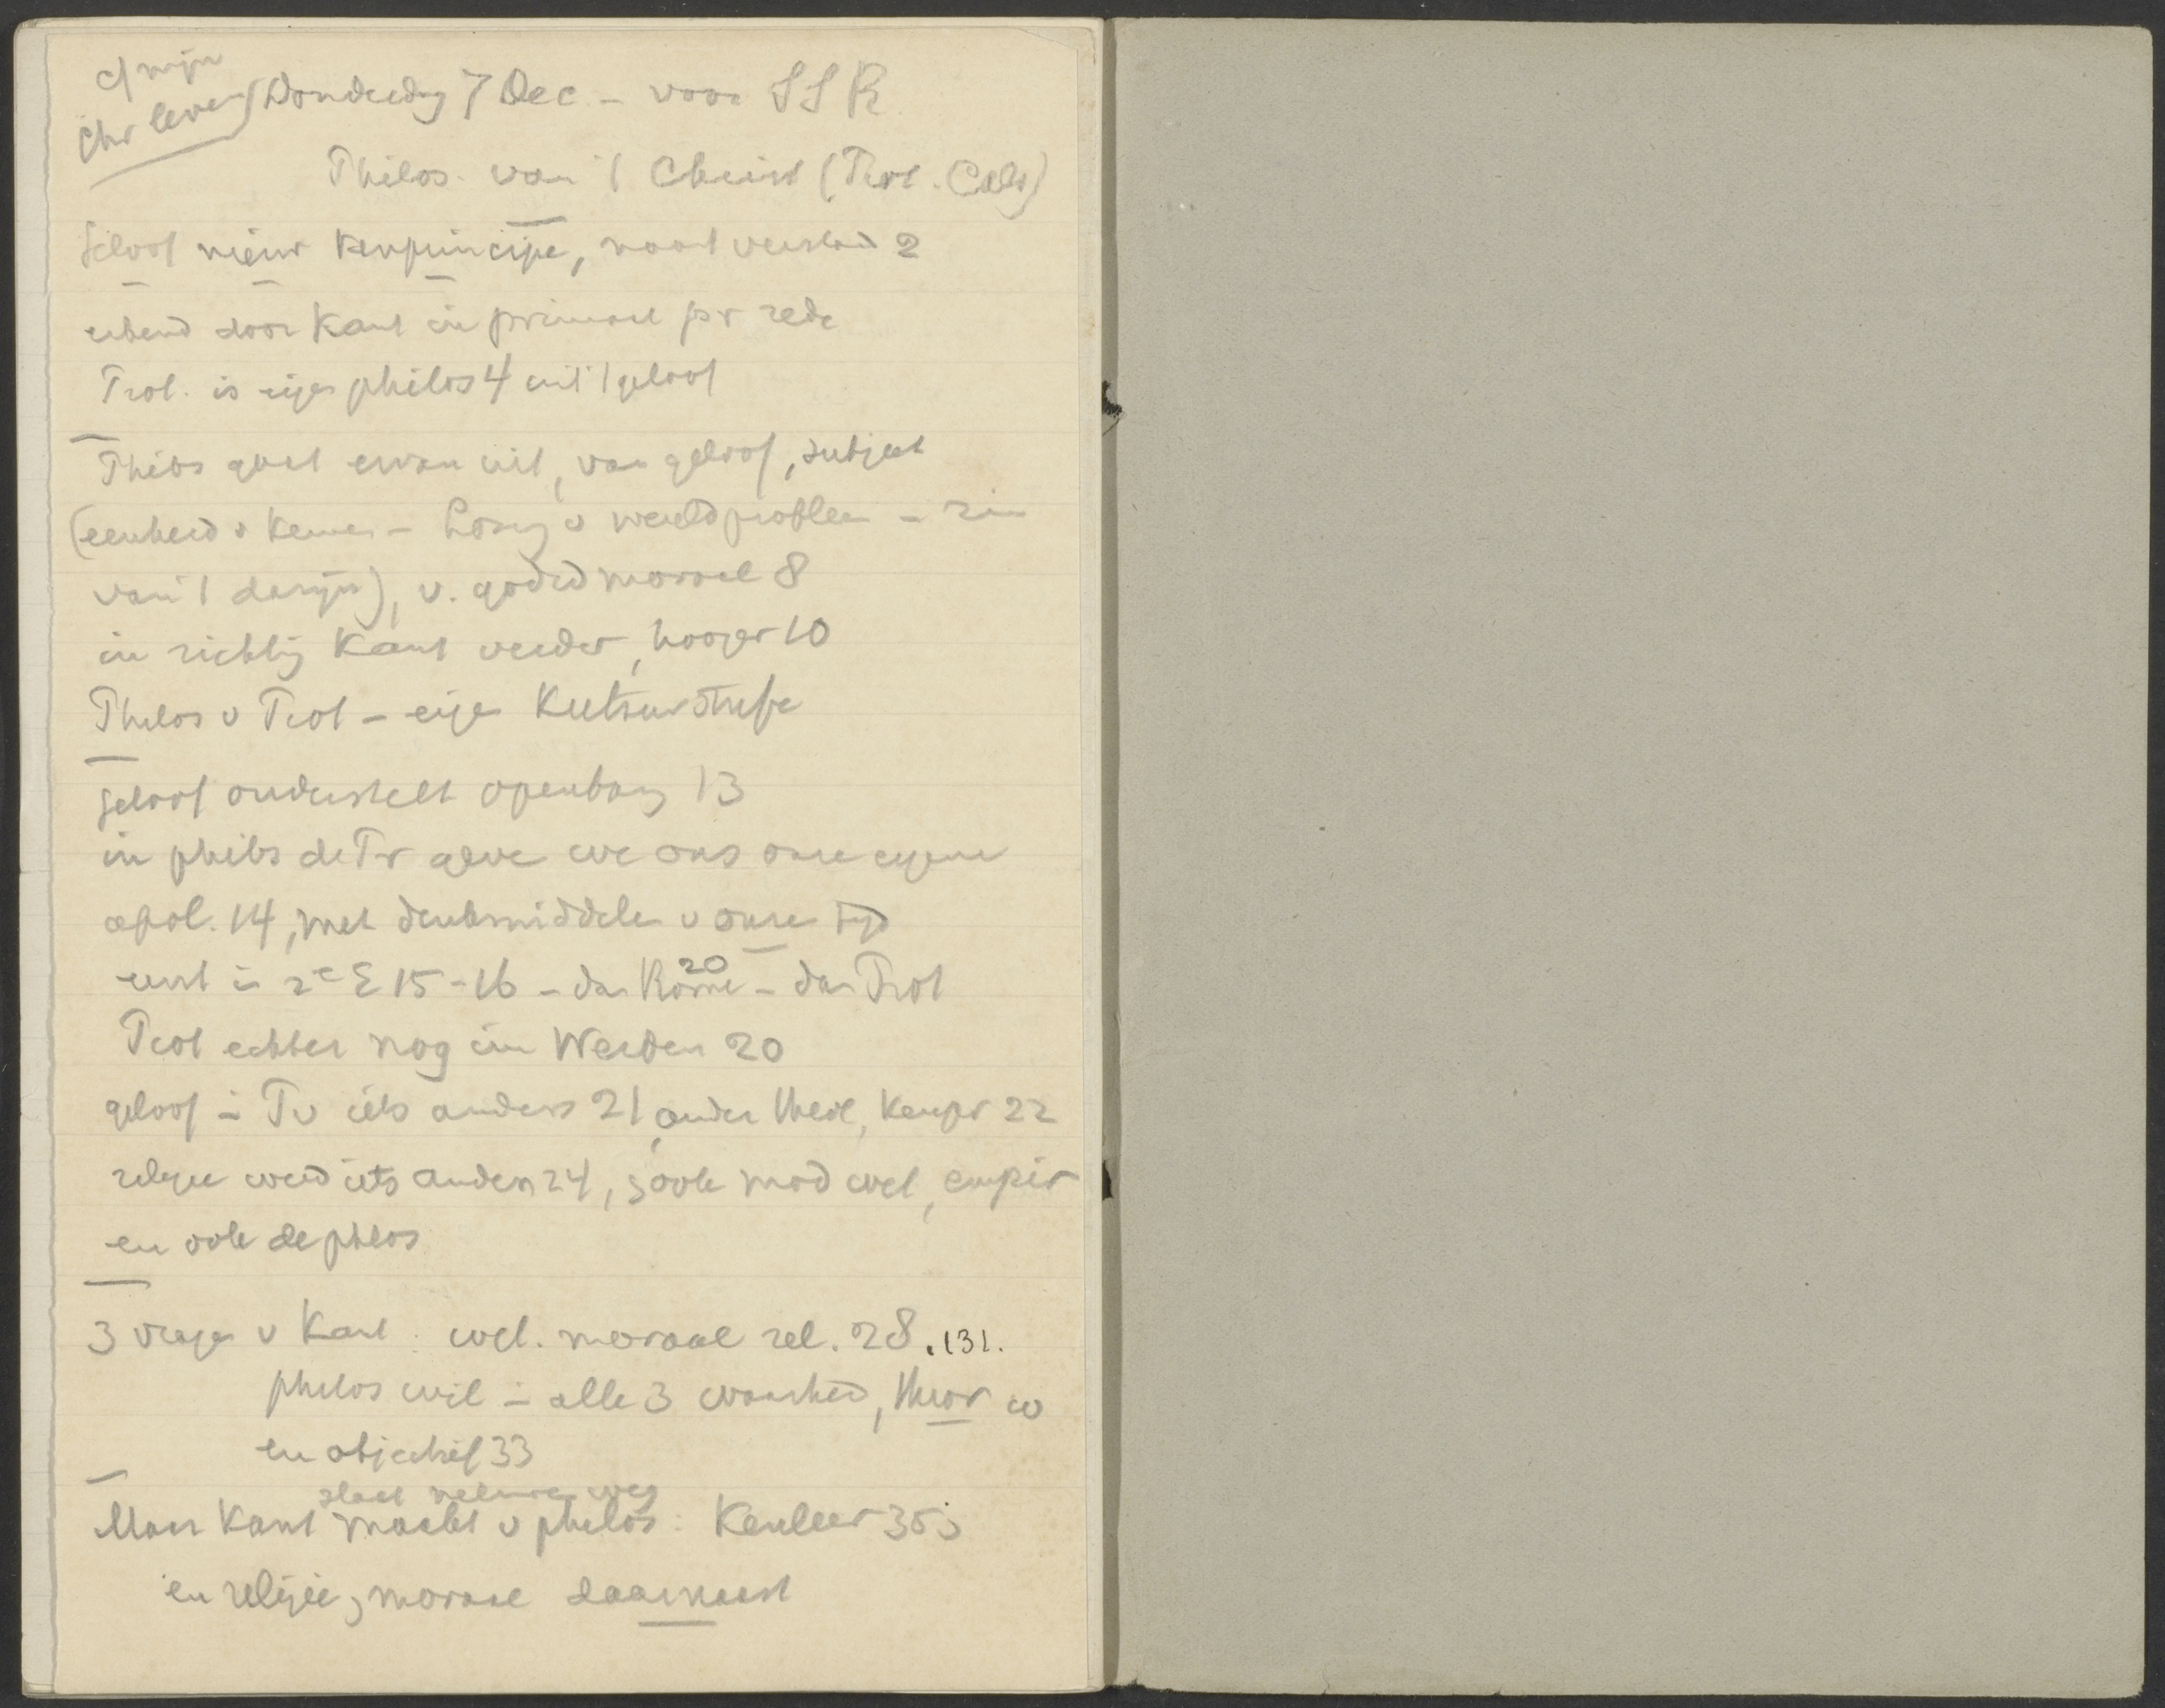 cf mijn
Chr leven
Donderdag 7 Dec - voor SSR
Philos. van 't Christ (Prot. Calv)
Geloof nieuw kenprincipe, naast verstand 2
erkend door Kant in primaat pr rede
Prot. is eigen philos 4 uit 't geloof
Philos gaat ervan uit, van geloof, subject
(eenheid v kennen - Lösung v wereldprobleem - zin
van 't danzijn), v. godsd moraal 8
in richting Kant verder, hooger 10
Philos v Prot - eigen Kulturstufe
Geloof onderstelt openbaring 13
in philos de Pr geve we ons onze eigene
apol. 14, met denkmiddelen v onze tijd
eerst in 2e E 15-16 - dan Rome 20 - dan Prot
Prot echter nog im Werden 20
geloof in Pr iets anders 21, ander theol, kenpr 22
religie werd iets anders 24, ook mod wet, empir
en ook de philos
3 vragen v Kant: wet. moraal rel. 28. 131.
philos wil in alle 3 waarheid, theor w
en objectief 33
slaat nieuwe weg
Maar Kant maakt v philos: Kenleer 35;
en religie, moraal daarnaast